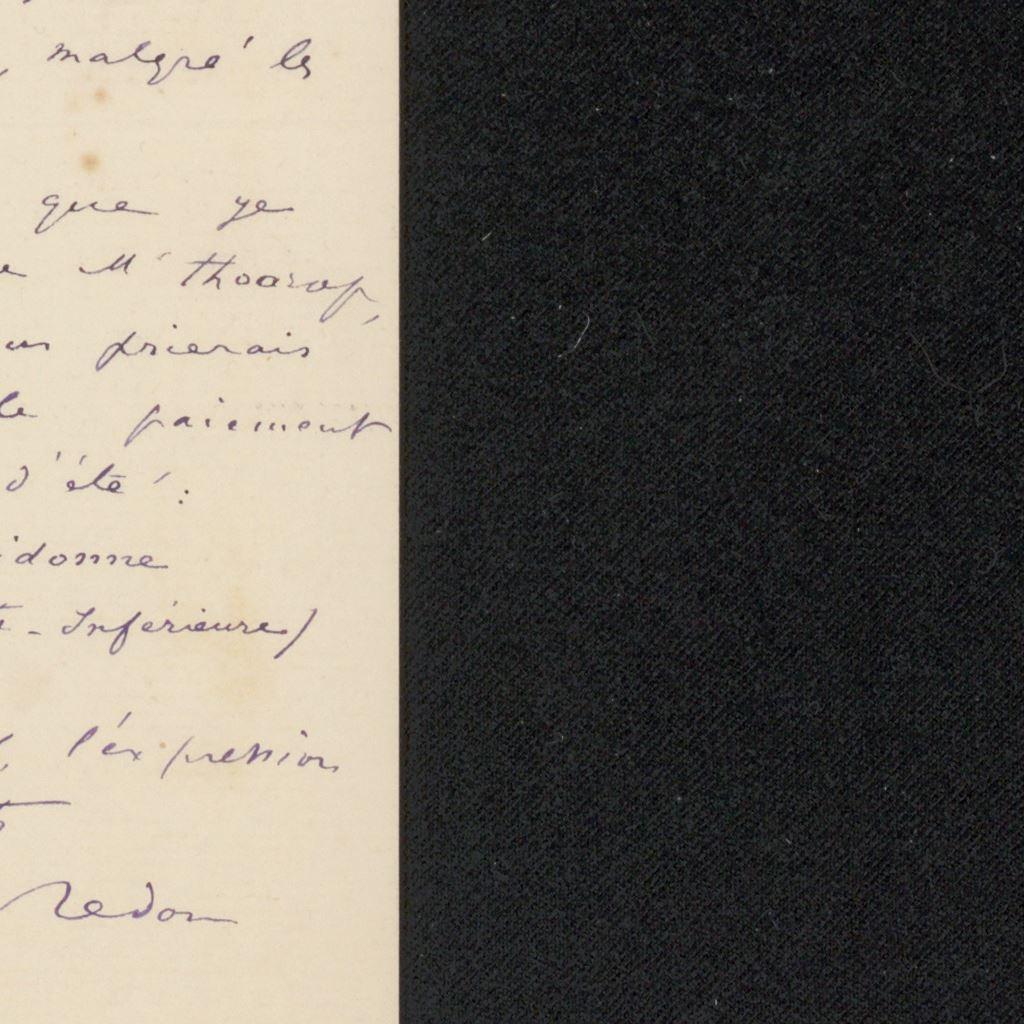 malgré les
que je
Mr Thoorop,
prierais
paiement
d'été :
idonne
- Inférieure)
l'expression
Redon